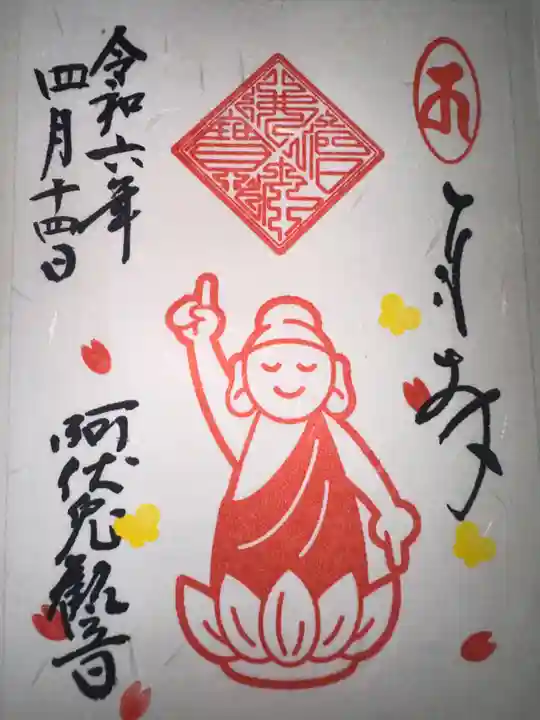 奉拝
令和六年
四月十四日
阿伏兎観音